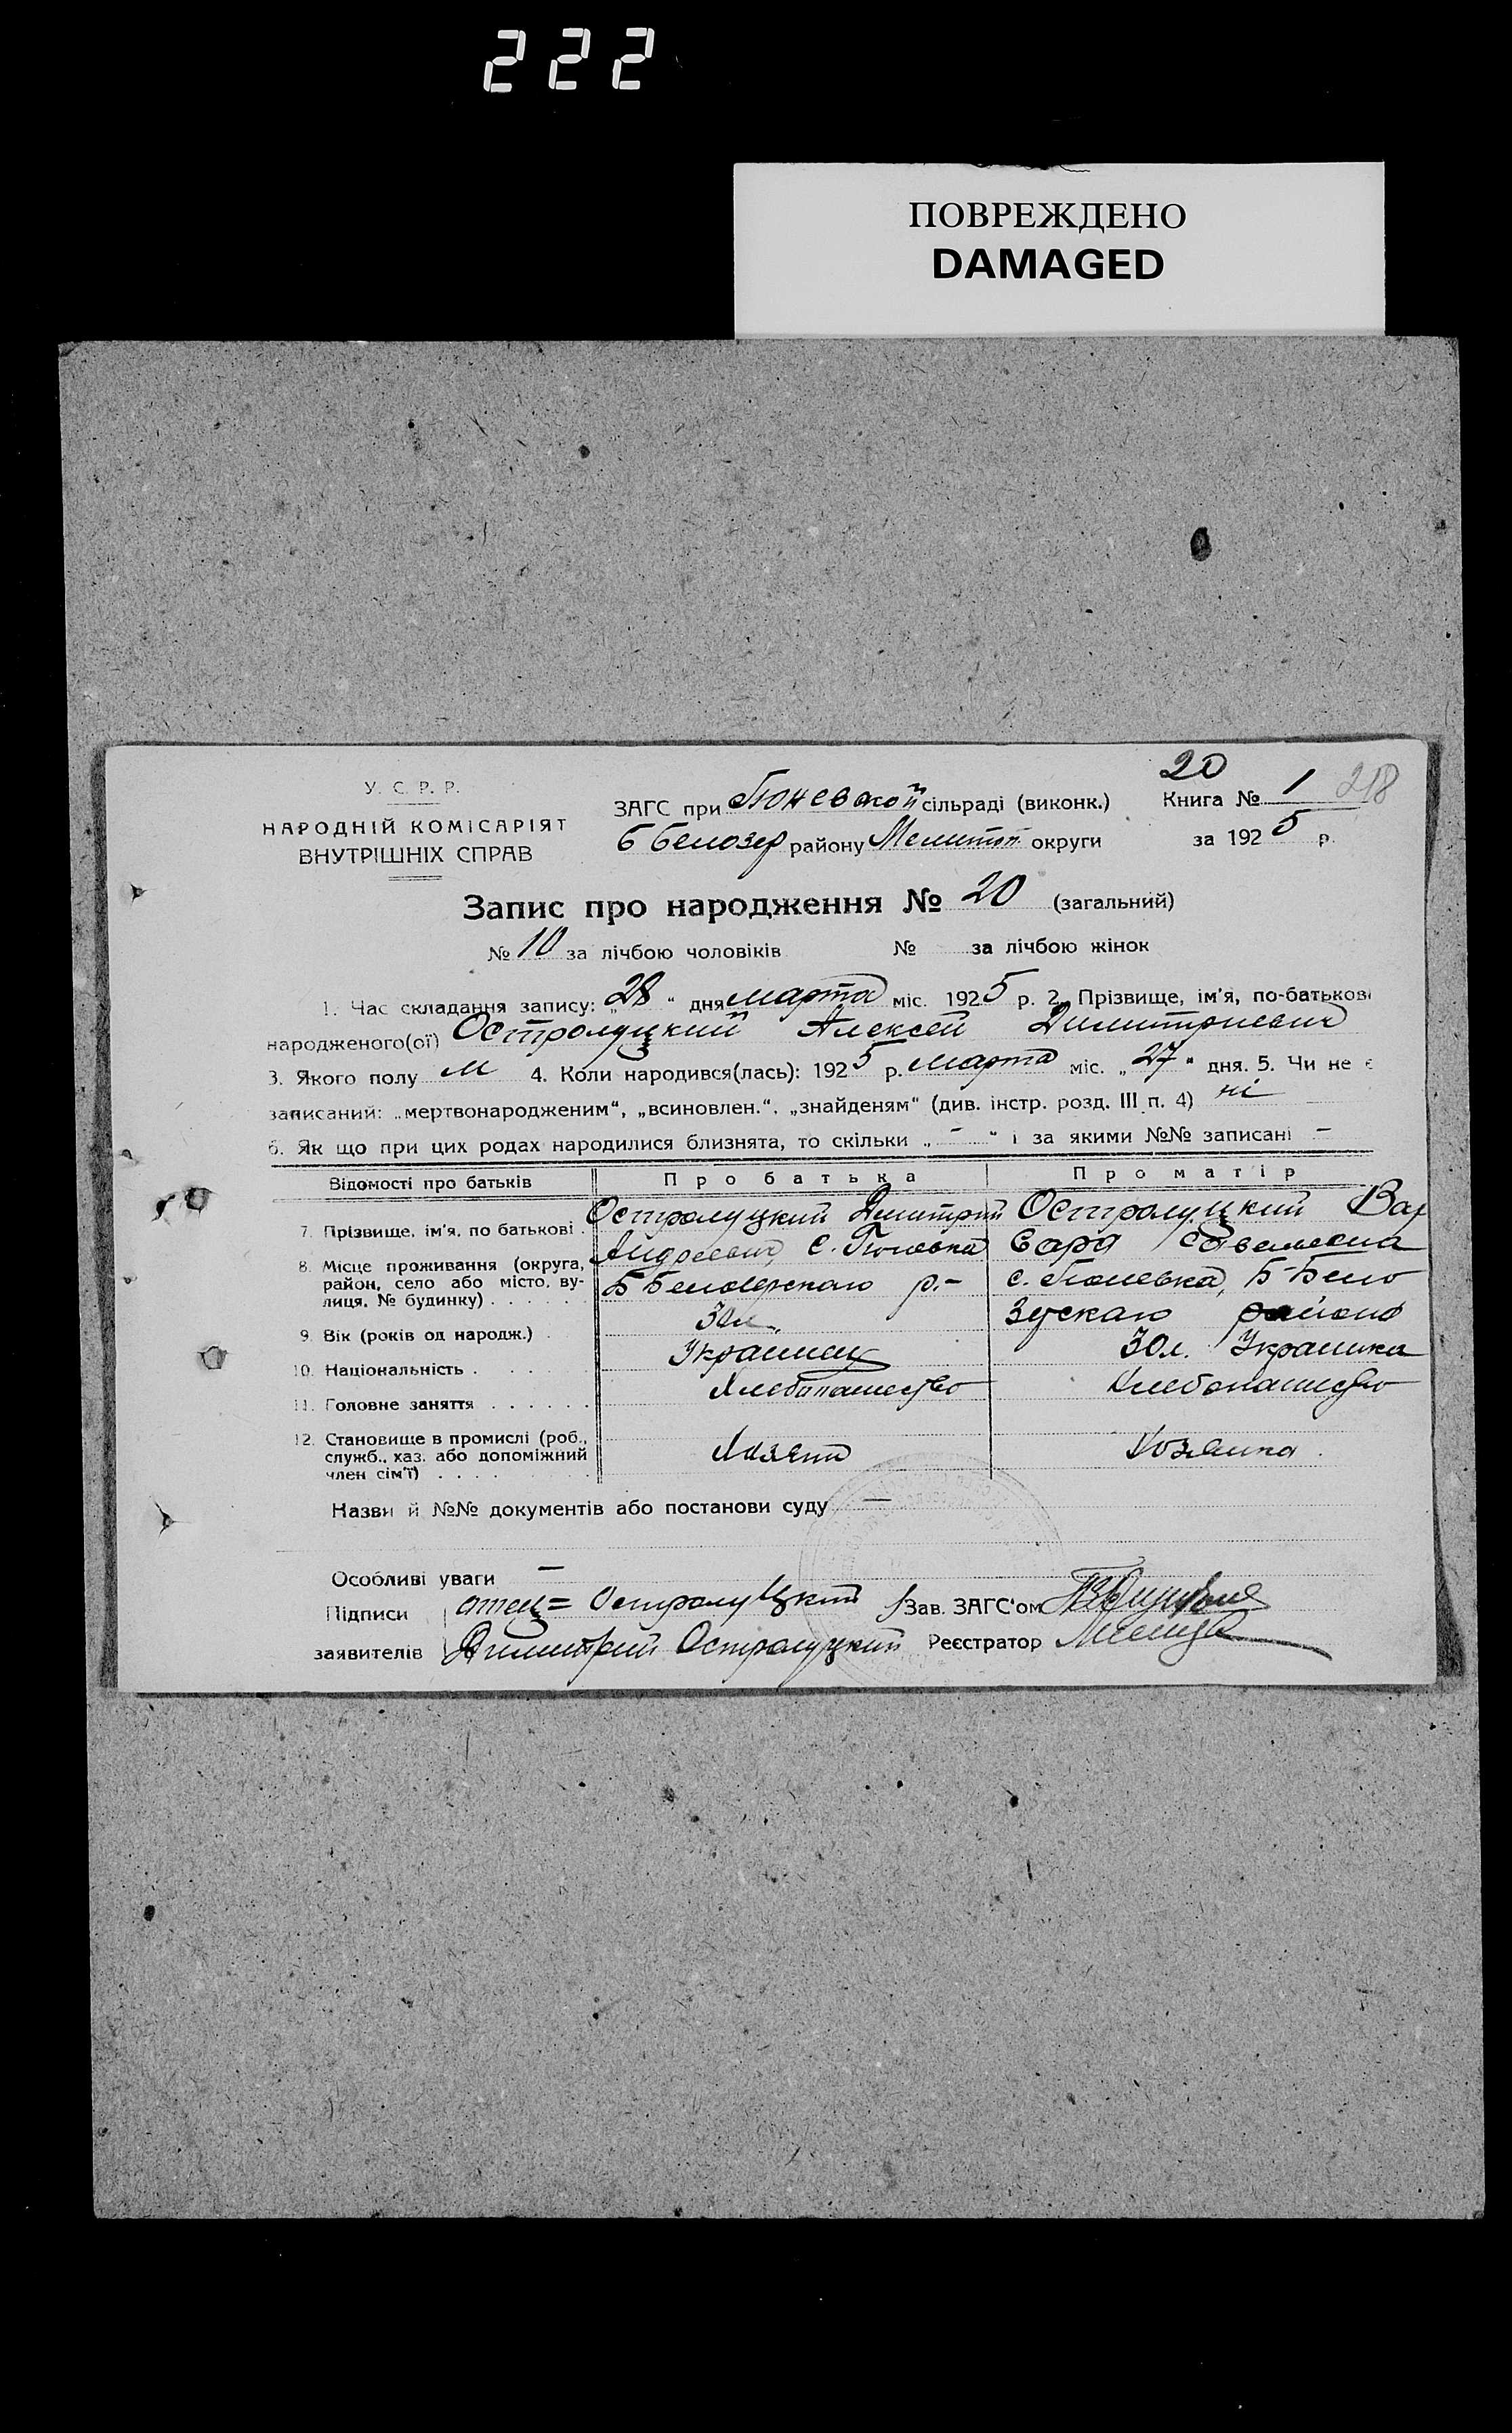 222
ПОВРЕЖДЕНО
DAMAGED
20
У. С. Р. Р.
НАРОДНІЙ КОМІСАРІЯТ
ВНУТРІШНІХ СПРАВ
ЗАГС при сільраді (виконк.)
Книга № 1 218
Б Белозер району Мелитоп округи
за 1925 р.
Запис про народження № 20 (загальний)
№ 10 за лічбою чоловіків № за лічбою жінок
1. Час складання запису: „28“ дня марта міс. 1925 р. 2. Прізвище, ім'я, по-батькові
народженого(ої) Остролуцкий Алексей Димитриевич
3. Якого полу м 4. Коли народився(лась): 1925 р. марта міс. „27“ дня. 5. Чи не є
записаний: „мертвонародженим“, „всиновлен.“, „знайденям“ (див. інстр. розд. III п. 4) ні
6. Як що при цих родах народилися близнята, то скільки „ - “ і за якими №№ записані -
Відомості про батьків
Про батька
Про матір
7. Прізвище, ім'я, по батькові .
Остролуцкий Димитрий
Андреевич, с.
Остролуцкий Вар
вара
8. Місце проживання (округа,
район, село або місто, ву-
лиця, № будинку) . . . . . .
Б Белозерского р.-
с. Б-Бело
зерскаго района
9. Вік (років од народж.) .
30 л.
30 л.
10. Національність . . . .
Украинец
Украинка
11. Головне заняття . . . . . .
Хлебопашество
Хлебопашество
12. Становище в промислі (роб.,
служб., хаз. або допоміжний
член сім'ї) . . . .
Хозяин
Хозяика
Назви й №№ документів або постанови суду —
Особливі уваги —
Підписи
заявителів
отец = Остролуцкий
Димитрий Остролуцкий
Зав. ЗАГС'ом
Реєстратор